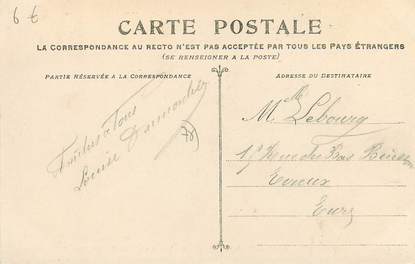 6 €
CARTE POSTALE
LA CORRESPONDANCE AU RECTO N'EST PAS ACCEPTÉE PAR TOUS LES PAYS ÉTRANGERS
(SE RENSEIGNER A LA POSTE)
PARTIE RÉSERVÉE A LA CORRESPONDANCE
ADRESSE DU DESTINATAIRE
à Tous
Louise
M. Lebourg
Rue du
Evreux
Eure